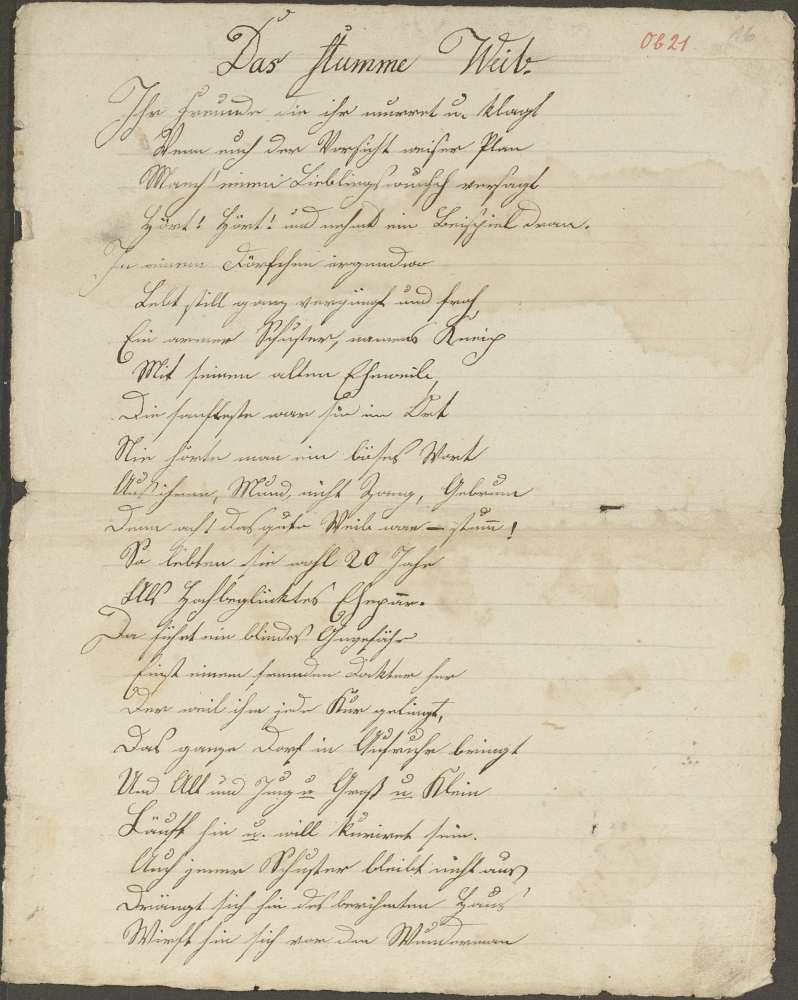 Das stumme Weib.
0621
16
Ihr Freunde die ihr murret u. klagt
Wenn euch der Vorsicht weiser Plan
Manch' einen Lieblingswunsch versagt
Hört! Hört! und nehmt ein Beispiel dran.
In einem Dörfchen irgendwo
Lebt still ganz vergüngt und froh
Ein armer Schuster, namens Kneip
Mit seinem alten Eheweib,
Die sanfteste war sie im Ort
Nie hörte man ein böses Wort
Aus ihrem Mund, nicht Zang, Gebrum
Denn ach! das gute Weib war – stum̅!
So lebten sie wohl 20 Jahr
Als Hochbeglücktes Ehepar.
Da führt ein blindes Ungefähr
Einst einem fremden Dokter her
Der weil ihm jede Kur gelingt,
Das ganze Dorf in Aufruhr bringt
Und Alt und Jung u Groß u. Klein
Läuft hin u. will kuriret sein.
Auch jener Schuster bleibt nicht aus
Drängt sich hin des berihmten Haus
Wirft hin sich vor den Wunderman